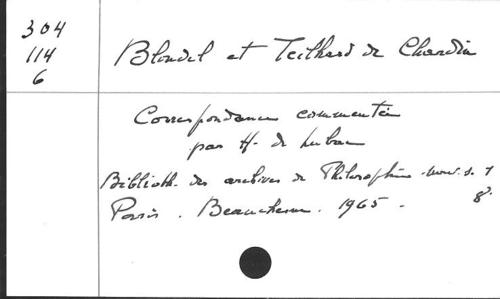 304
114
6
Blondel et Teilhard de Chardin
Correspondance commentée
par H. de Lubac
Biblioth. des archives de Philosophie. nouv. s. 1
Paris. Beauchesne. 1965. 8°.